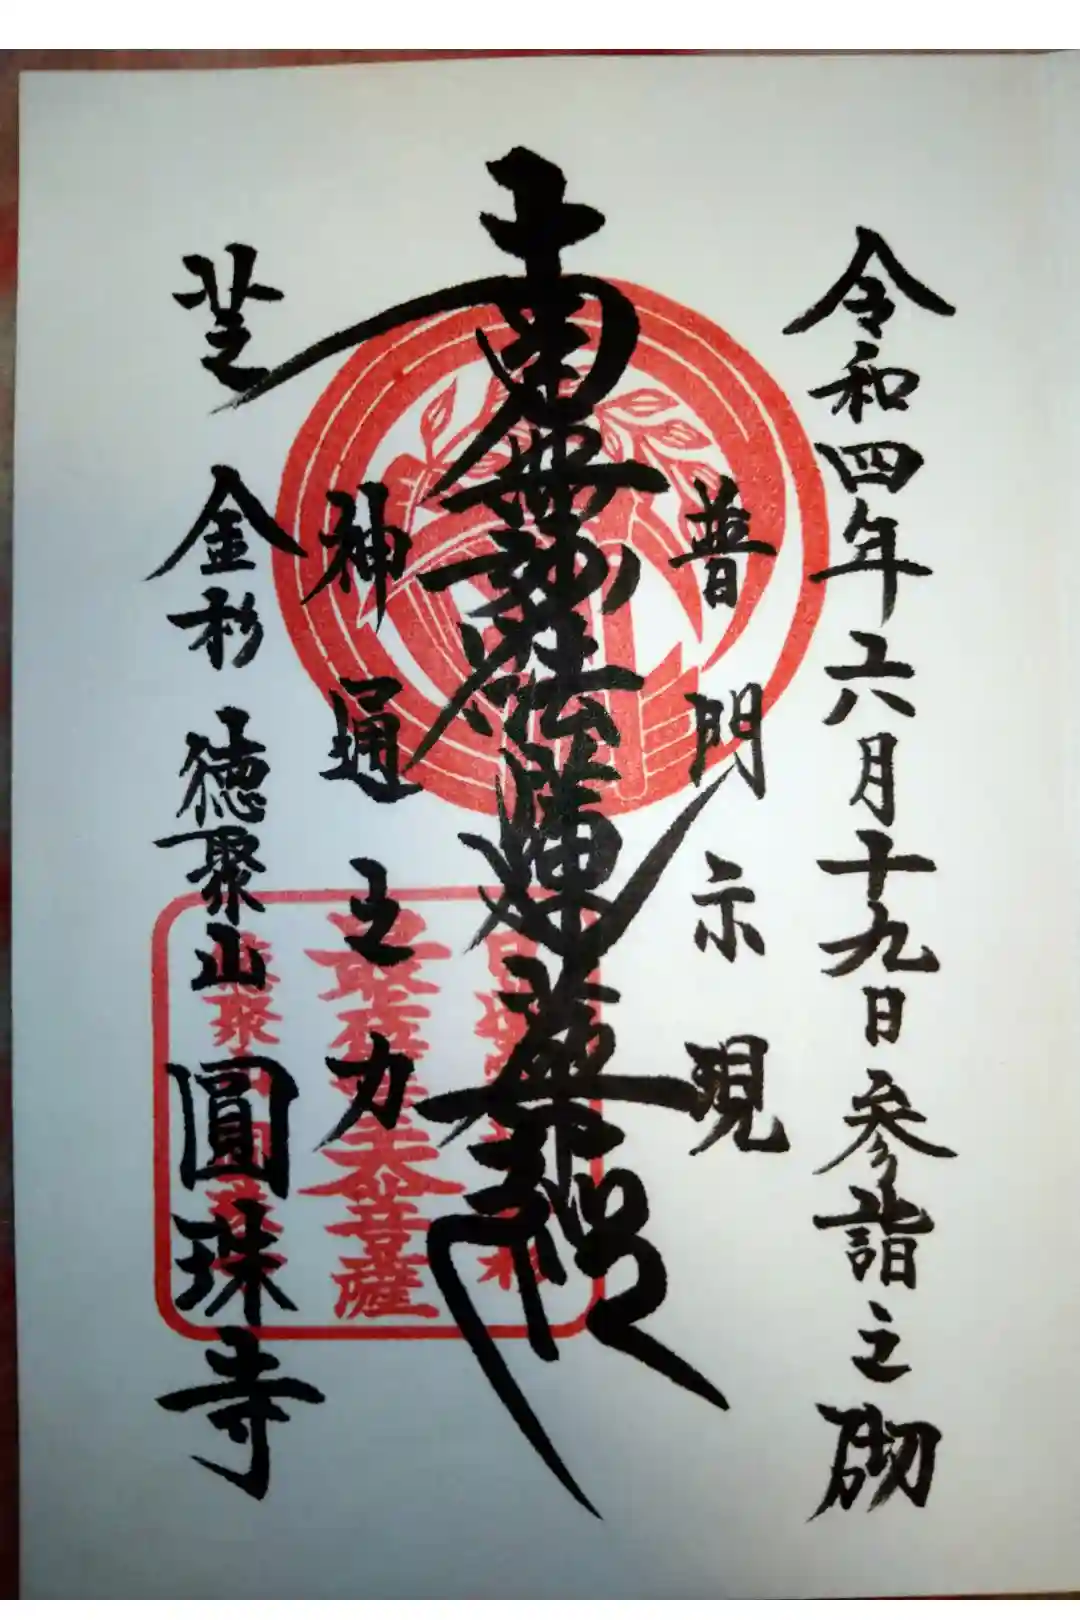 令和四年六月十九日参詣之砌
普門示現
南無妙法蓮華経
神通之力
芝金杉徳聚山圓珠寺
最
大菩薩